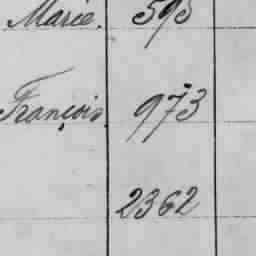 Marie. 595
François. 973
2362